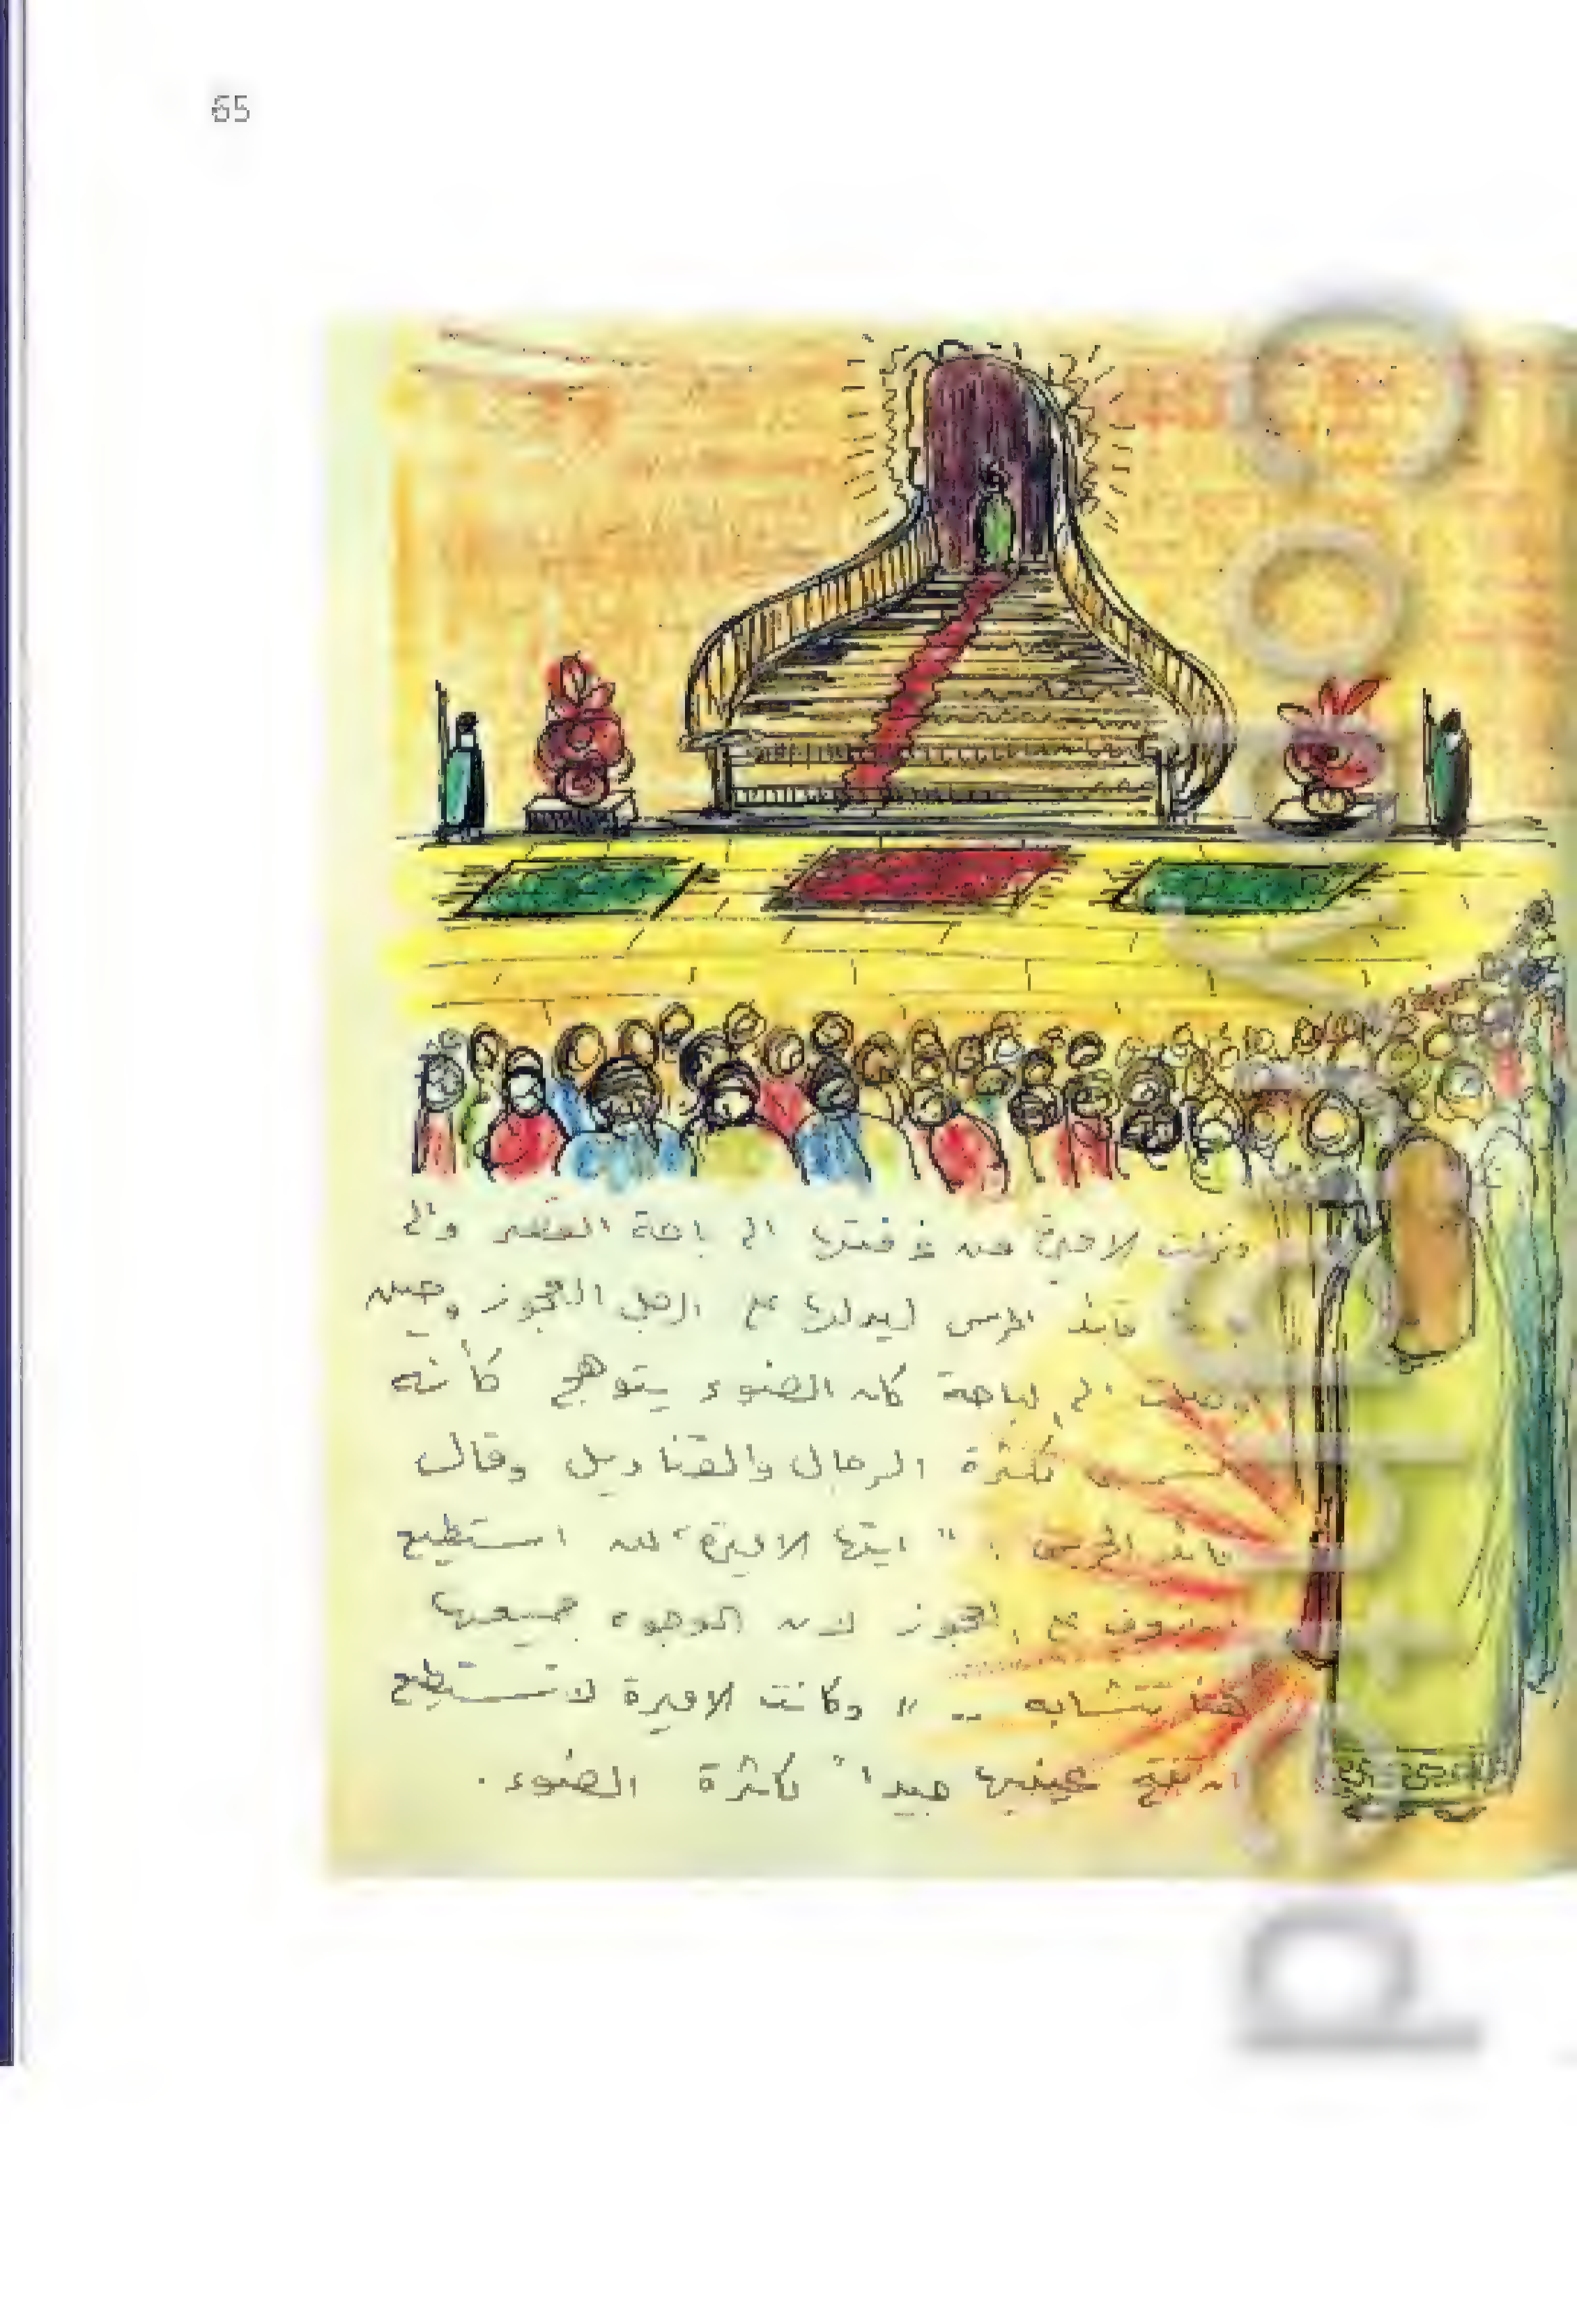 65
ونزلت الاميرة من غرفتها الى باحة القصر والى
قائد الحرس ليدلها على الرجل العجوز وحين
وصلت الى الباحة كان الضوء يتوهج كأنه
الشمس لكثرة الرجال والقناديل وقال
قائد الحرس : " ايتها الاميرة ، لن استطيع
على العجوز لان الوجوه جميعها
هنا تتشابه .. " وكانت الاميرة لا تستطيع
ان تفتح عينيها جيداً لكثرة الضوء .